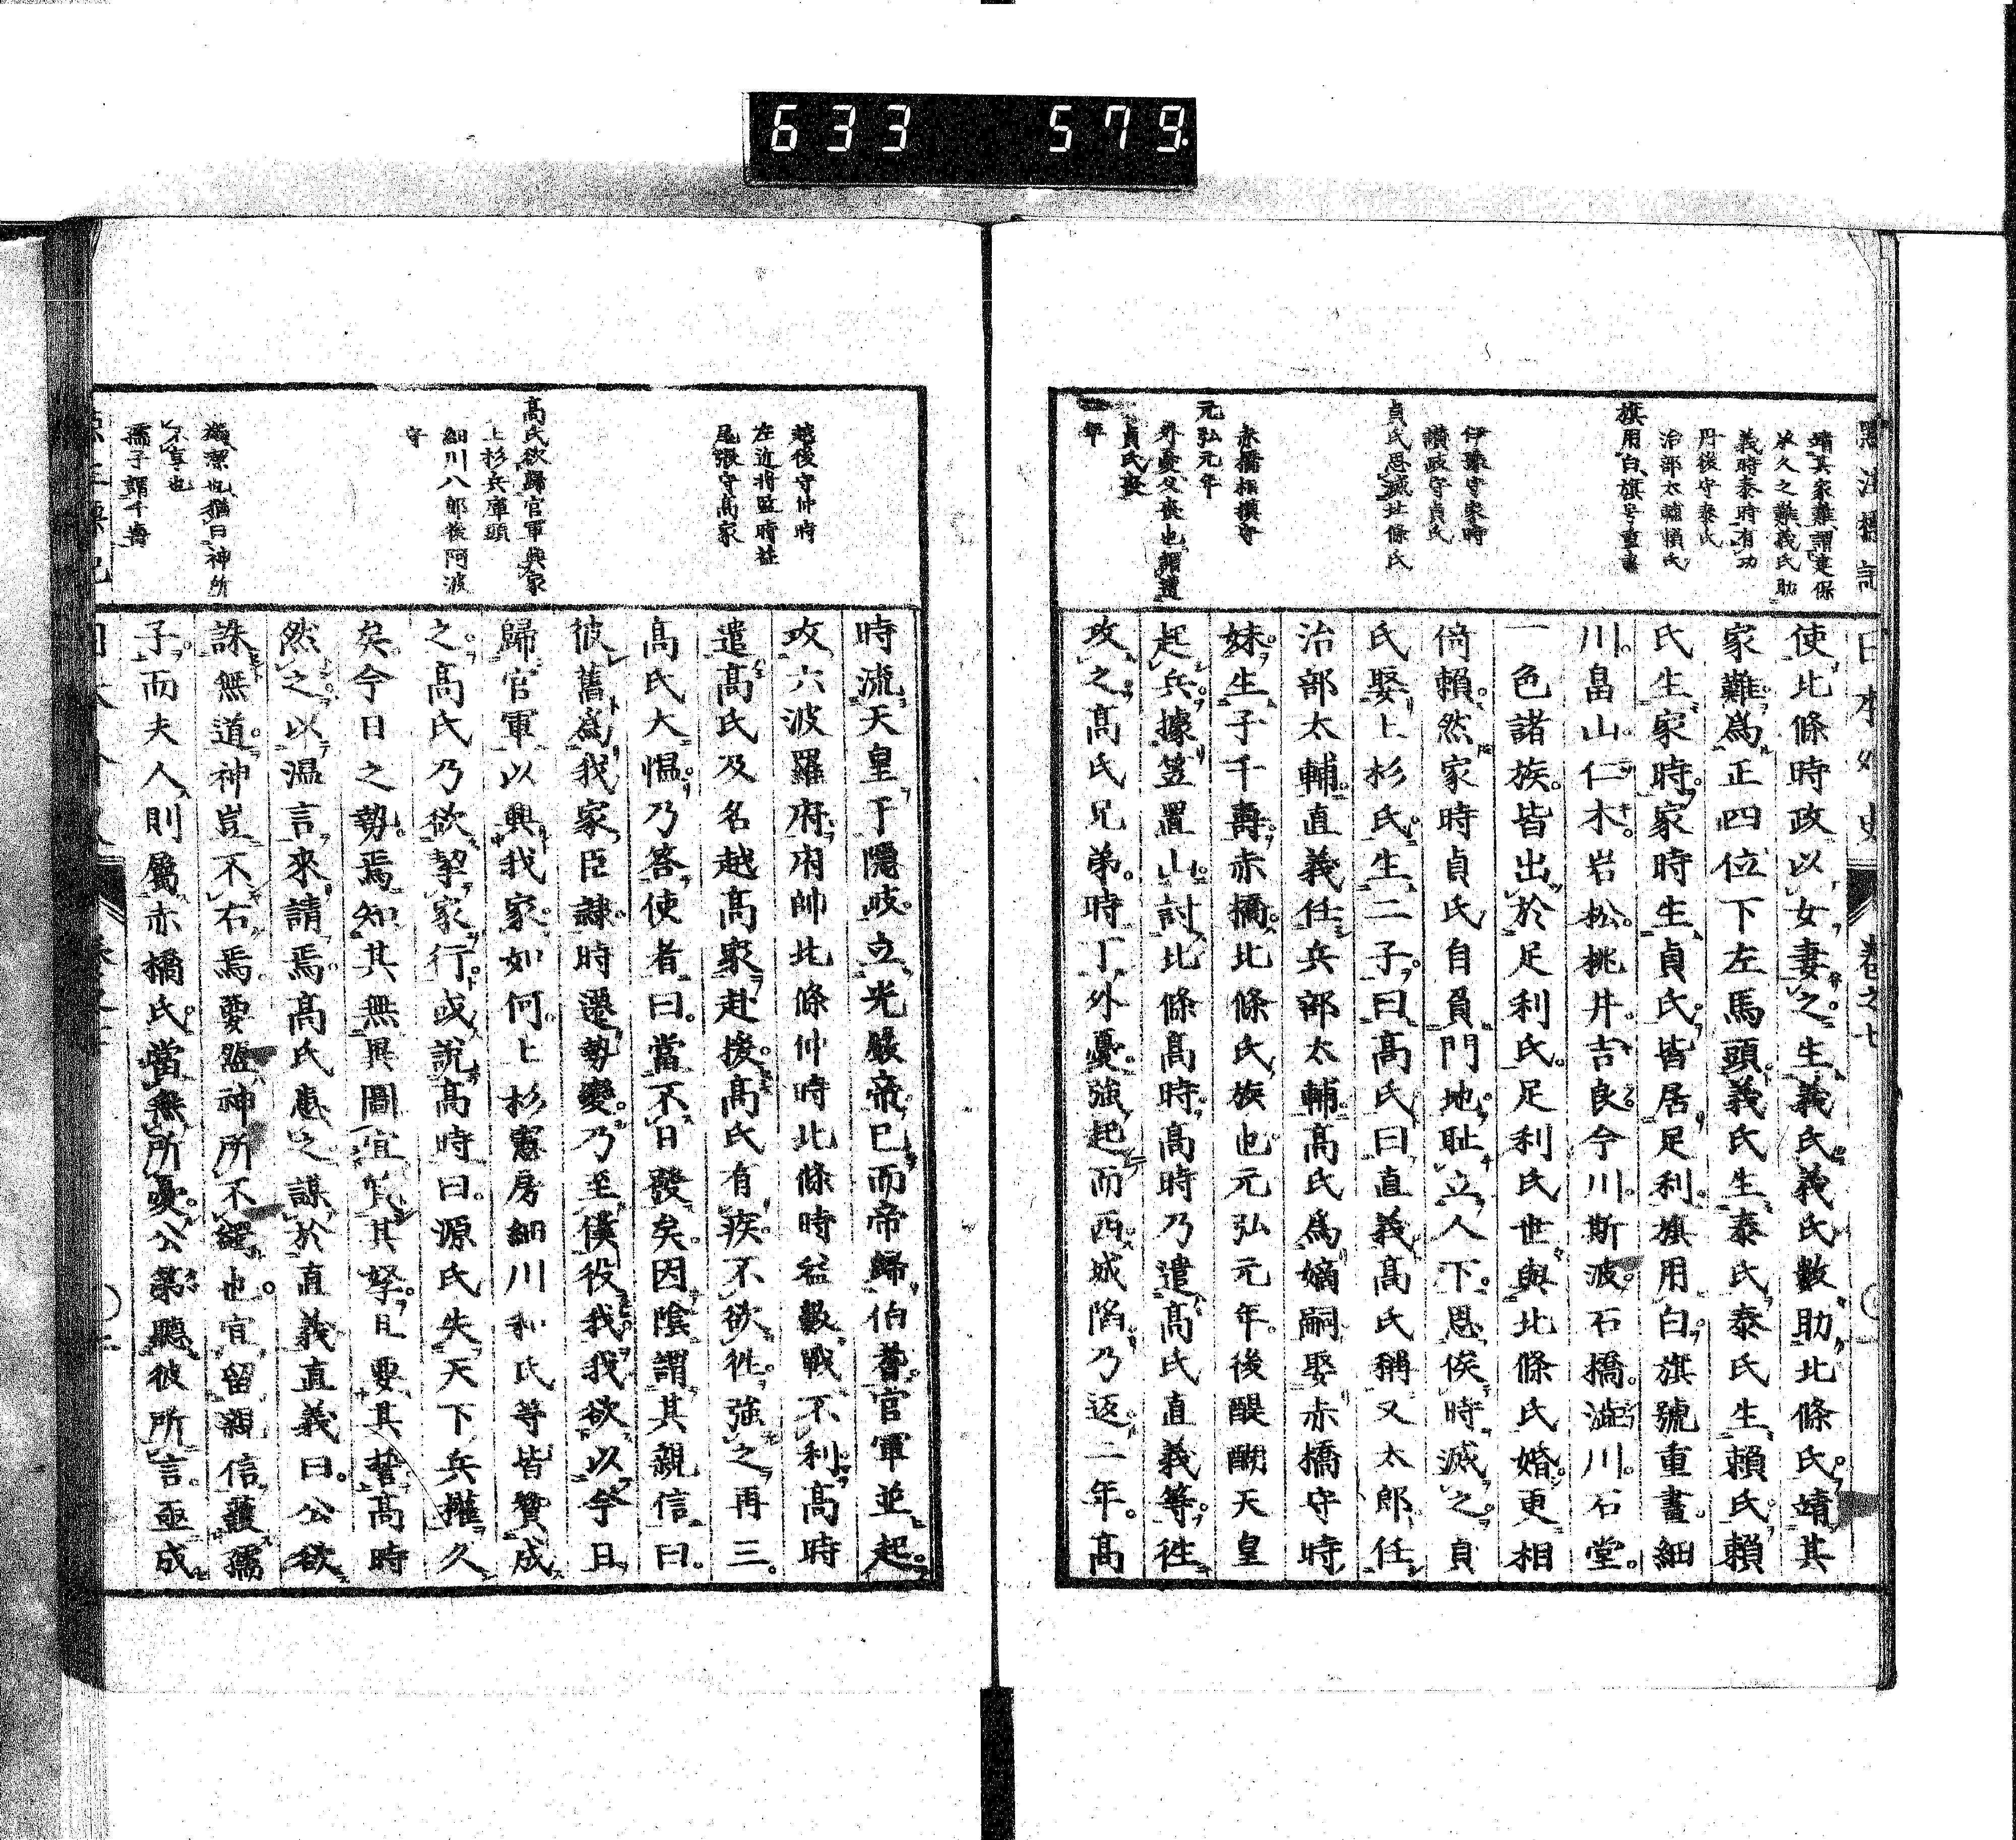 633 579
日本外史
卷之七
靖其家難謂建保
承久之難義氏助
義時泰時有功
丹後守泰氏
治部太輔賴氏
旗用白旗号重畫
伊豫守家時
讚岐守貞氏
貞氏思滅北條氏
赤橋相模守
元弘元年
外憂父喪也謂遭
貞氏喪
二年
使北條時政以女妻之生義氏義氏數助北條氏靖其
家難爲正四位下左馬頭義氏生泰氏泰氏生賴氏賴
氏生家時家時生貞氏皆居足利旗用白旗號重畫細
川畠山仁木岩松桃井吉良今川斯波石橋澁川石堂
一色諸族皆出於足利氏足利氏世與北條氏婚更相
倚賴然家時貞氏自負門地耻立人下思俟時滅之貞
氏娶上杉氏生二子曰高氏曰直義高氏稱又太郎任
治部太輔直義任兵部太輔高氏爲嫡嗣娶赤橋守時
妹生子千壽赤橋北條氏族也元弘元年後醍醐天皇
起兵據笠置山討北條高時高時乃遣高氏直義等往
攻之高氏兄弟時丁外憂強起而西城陷乃返二年高
越後守仲時
左近將監時益
尾張守高家
高氏欲歸官軍興家
上杉兵庫頭
細川八郎後阿波
守
蠲潔也猶曰神所
不享也
孺子謂千壽
時流天皇于隱岐立光嚴帝已而帝歸伯耆官軍並起
攻六波羅府府帥北條仲時北條時益數戰不利高時
遣高氏及名越高家赴援高氏有疾不欲徃強之再三
高氏大慍乃答使者曰當不日發矣因陰謂其親信曰
彼舊爲我家臣隷時遷勢變乃至僕役我我欲以今日
歸官軍以興我家如何上杉憲房細川和氏等皆贊成
之高氏乃欲挈家行或說高時曰源氏失天下兵權久
矣今日之勢焉知其無異圖宜質其孥且要其誓高時
然之以溫言來請焉高氏患之謀於直義直義曰公欲
誅無道神豈不右焉要盟神所不蠲也宜留親信護孺
子而夫人則屬赤橋氏當無所憂公第聽彼所言亟成